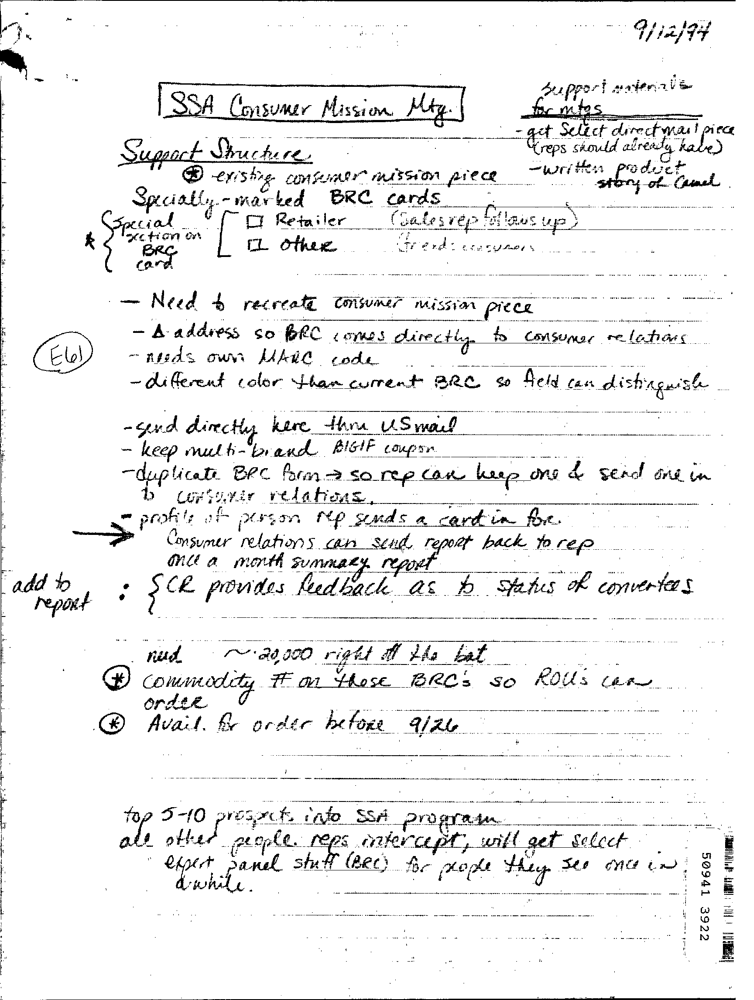 9/12/94
SSA Consumer Mission Mtg.
support materials
for mtgs
- get Select direct mail piece
(reps should already have)
- written product
story of Camel
Support Structure
* - existing consumer mission piece
Specially-marked BRC cards
* { Special section on BRC card
[ □ Retailer (Sales rep follows up)
□ Other
— Need to recreate consumer mission piece
- Δ address so BRC comes directly to consumer relations
- needs own MARC code
- different color than current BRC so field can distinguish
E61
- send directly here thru US mail
- keep multi-brand B1G1F coupon
- duplicate BRC form → so rep can keep one & send one in
to consumer relations.
- profile of person rep sends a card in for.
→ Consumer relations can send report back to rep
once a month summary report
add to report : { CR provides feedback as to status of convertees
need ~ 20,000 right off the bat
* Commodity # on these BRC's so ROU's can
order
* Avail. for order before 9/26
top 5-10 prospects into SSA program
all other people reps intercept, will get select
expert panel stuff (BRC) for people they see once in
a while.
50941 3922